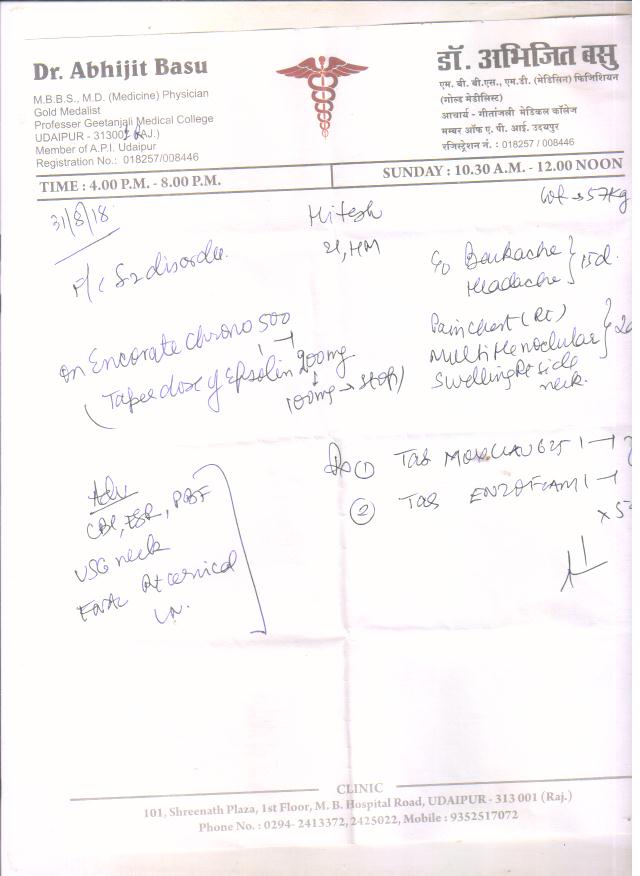 Dr. Abhijit Basu
M.B.B.S., M.D. (Medicine) Physician
Gold Medalist
Professer Geetanjali Medical College
UDAIPUR - 313001 (RAJ.)
Member of A.P.I. Udaipur
Registration No.: 018257/008446
डॉ. अभिजित बसु
एम. बी. बी.एस., एम.डी. (मेडिसिन) फिजिशियन
(गोल्ड मेडीलिस्ट)
आचार्य - गीतांजली मेडिकल कॉलेज
मेम्बर ऑफ ए. पी. आई. उदयपुर
रजिस्ट्रेशन नं. : 018257 / 008446
TIME : 4.00 P.M. - 8.00 P.M.
SUNDAY : 10.30 A.M. - 12.00 NOON
31/8/18
Hitesh
Wt → 57kg
21, HM
F/c Sz disorder
c/o Backache
Headache } 15d.
on Encorate chrono 500
1 — 1
Taper dose of Epsolin 200mg
↓
100mg → STOP)
Pain chest (Rt)
Multiple nodular
swelling Rt side
neck.
Rx ① TAB MOXCLAV 625 1 — 1
② TAB ENZOFLAM 1 — 1
x 5
Adv
CBC, ESR, PBF
USG neck
FNAC Rt cervical
LN.
CLINIC
101, Shreenath Plaza, 1st Floor, M. B. Hospital Road, UDAIPUR - 313 001 (Raj.)
Phone No. : 0294- 2413372, 2425022, Mobile : 9352517072